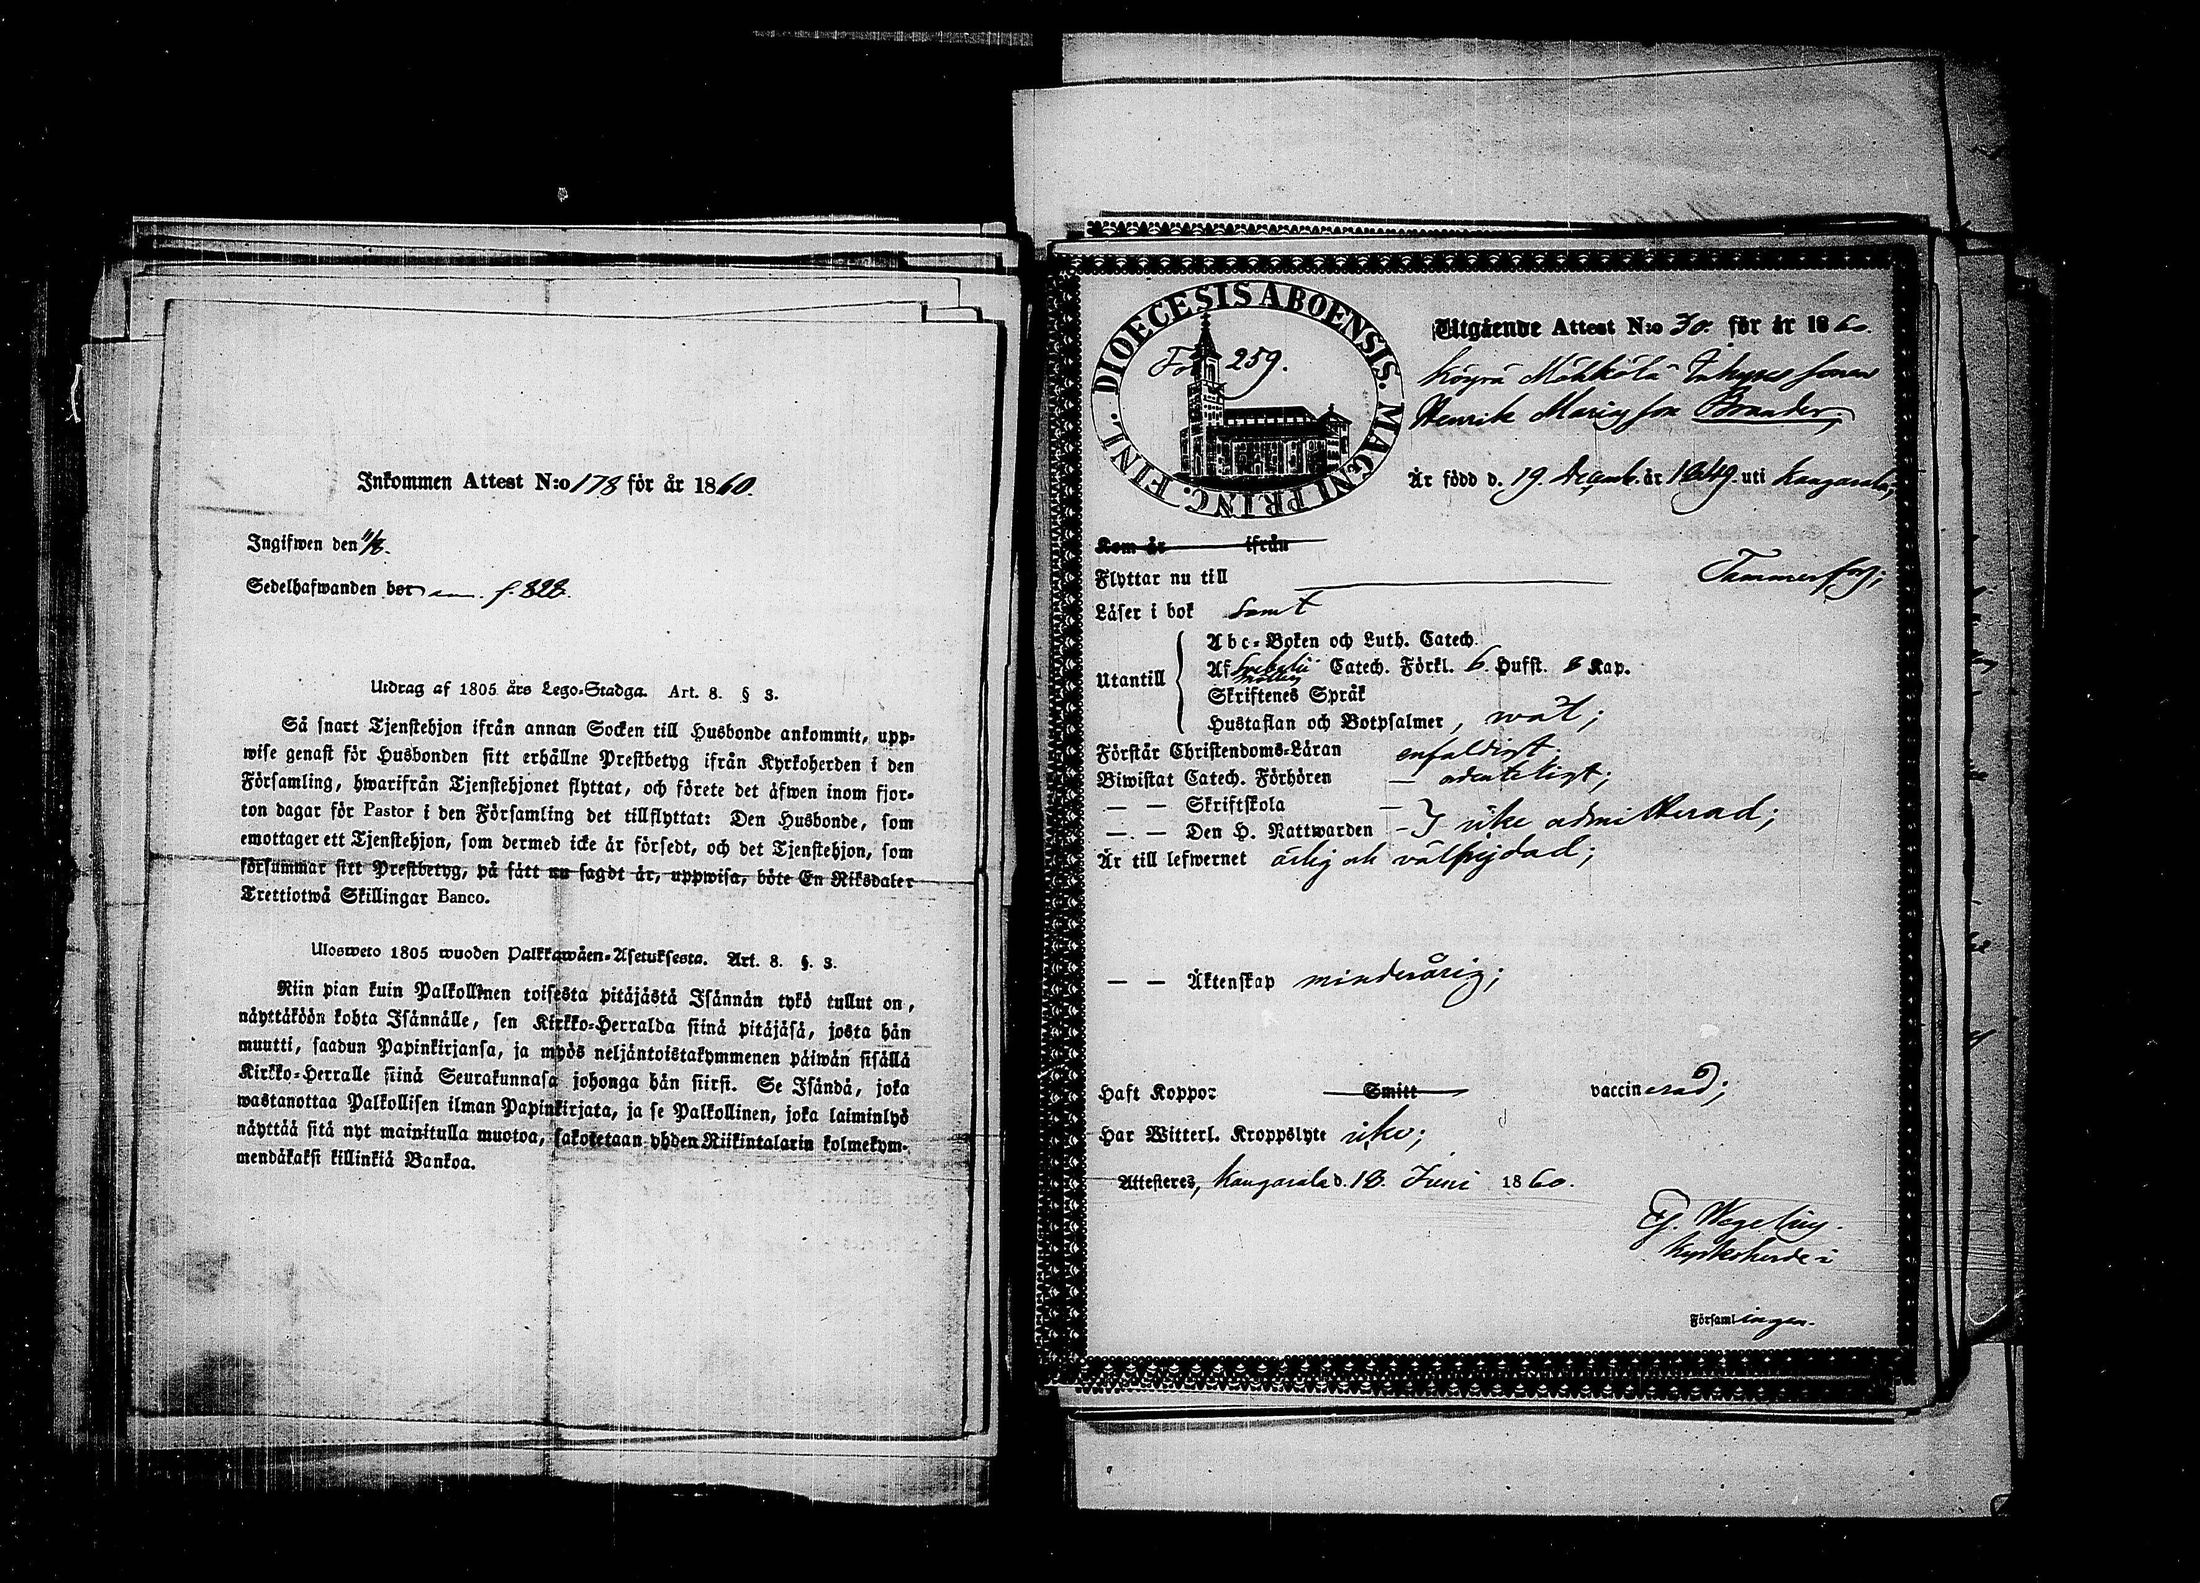 Inkommen Attest N:o 178 för år 1860.
Ingifwen den 11/8.
Sedelhafwanden bor f. 828.
Utdrag af 1805 års Lego-Stadga. Art. 8. § 3.
Så snart Tjenstehjon ifrån annan Socken till Husbonde ankommit, upp-
wise genast för Husbonden sitt erhållne Prestbetyg ifrån Kyrkoherden i den
Församling, hwarifrån Tjenstehjonet flyttat, och förete det äfwen inom fjor-
ton dagar för Pastor i den Församling det tillflyttat: Den Husbonde, som
emottager ett Tjenstehjon, som dermed icke är försedt, och det Tjenstehjon, som
försummar sitt Prestbetyg, på sätt nu sagdt är, uppwisa, böte En Riksdaler
Trettiotwå Skillingar Banco.
Ulosweto 1805 wuoden Palkkawäen-Asetuksesta. Art. 8. §. 3.
Niin pian kuin Palkollinen toisesta pitäjästä Isännän tykö tullut on,
näyttäköön kohta Isännälle, sen Kirkko-Herralda siinä pitäjäsä, josta hän
muutti, saadun Papinkirjansa, ja myös neljäntoistakymmenen päiwän sisällä
Kirkko-Herralle siinä Seurakunnasa johonga hän siirsi. Se Isändä, joka
wastanottaa Palkollisen ilman Papinkirjata, ja se Palkollinen, joka laiminlyö
näyttää sitä nyt mainitulla muotoa, sakotetaan yhden Riikintalarin kolmekym-
mendäkaksi killinkiä Bankoa.
DIOECESIS ABOENSIS. MAGNI PRINC. FINL.
Fol 259.
Utgående Attest N:o 30. för år 1860.
Mökkölä Inhyses sonen
Henrik Mariæ son Brander,
Är född d. 19. Decemb. år 1849. uti Kangasala,
Kom år ifrån
Flyttar nu till Tammerfors;
Läser i bok samt
Utantill
Abc-Boken och Luth. Catech.
Af Svebelii Catech. Förkl. 6. Hufst. 8 Kap.
Skriftenes Språk
Hustaflan och Botpsalmer,
Förstår Christendoms-Läran enfaldigt.
Biwistat Catech. Förhören — ordentligt;
— — Skriftskola —
— — Den H. Nattwarden — icke admitterad;
Är till lefwernet ärlig och välfrejdad;
— — Äktenskap minderårig;
Haft Koppor Smitt vaccinerad;
Har Witterl. Kroppslyte icke;
Attesteres, Kangasala d. 18. Juni 1860.
Wegelius.
Kyrkoherde i
Församlingen.